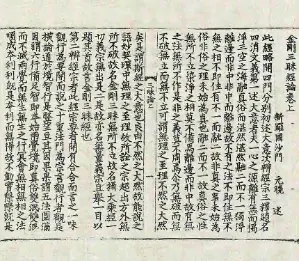 金剛三昧經論卷上
新羅國沙門 元曉 述
此經略開四門分別初述大意次辨經宗三釋題名
四消文義第一述大意者夫一心之源離有無而獨
淨三空之海融眞俗而湛然湛然融二而不一獨淨
離邊而非中非中而離邊故不有之法不卽住無不
無之相不卽住有不一而融二故非眞之事未始爲
俗非俗之理未始爲眞也融二而不一故眞俗之性
無所不立染淨之相莫不備焉離邊而非中故有無
之法無所不作是非之義莫不周焉爾乃無破而無不
破無立而無不立可謂無理之至理不然之大然
三昧論上 一
矣是謂斯經之大意也良由不然之大然故能說之
語妙契環中無理之至理故所詮之宗超出方外無
所不破故名金剛三昧無所不立故名攝大乘經一
切義宗無出是二是故亦名無量義宗且擧一目以
題其首故言金剛三昧經也
第二辨經宗者此經宗要有開有合合而言之一味
觀行爲要開而說之十重法門爲宗言觀行者觀是
橫論通於境智行是竪望亘其因果果謂五法圓滿
因謂六行備足智卽本始兩覺境卽眞俗雙泯雙泯
而不滅兩覺而無生無生之行冥會無相無相之法
順成本利本利旣是本利而無得故不動實際際旣是